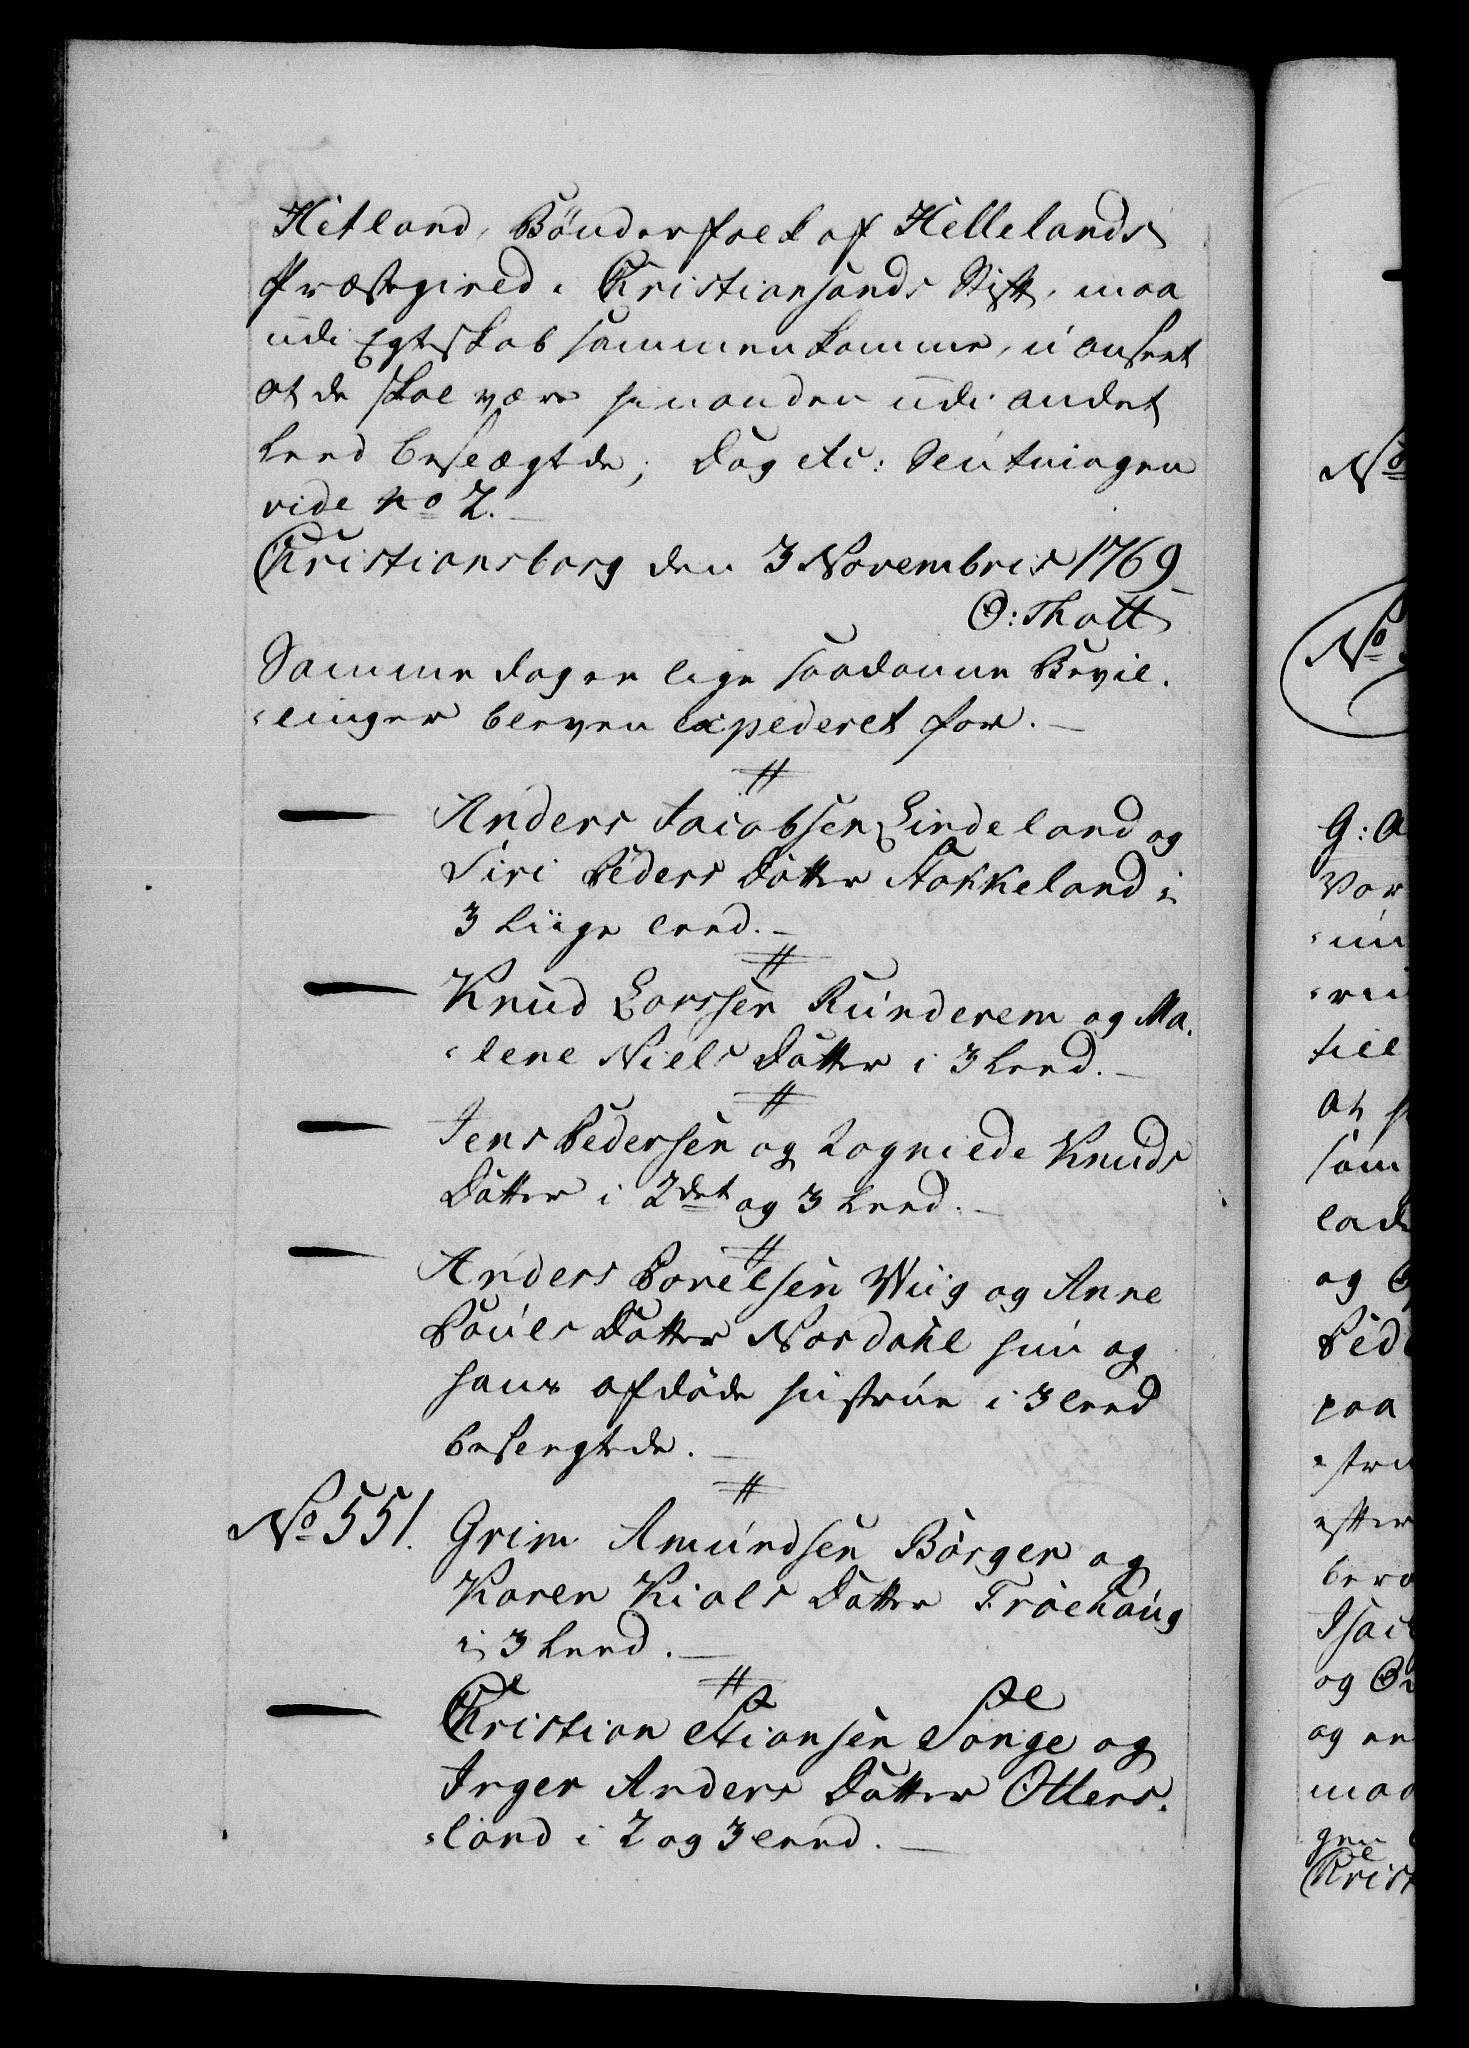 Hetland, Bönderfolck af Hellelands
Præstegield i Christiansands Stift, maa
udi Egteskab sammenkomme, uanseet
at de skal være hinanden udi andet
Leed beslægtede; dog etc: Slutningen
vide No 2.
Christiansborg den 3 Novembris 1769
O: Thott
Samme dag er lige saadanne Bevil-
-linger bleven expederet for.
Anders Jacobsen Lindeland og
Siri Peders Datter Stokkeland i
3 Liige Leed.
Knud Larssen Runderem og Ma-
-lene Niels Datter i 3 Leed.
Jens Pedersen og Knuds
Datter i 2det og 3 Leed.
Anders Povelsen Wiig og Anne
Pouls Datter Nordahl hun og
hans afdöde Hustrue i 3 Leed
beslegtede.
No 551. Grim Amundsen Börger og
Karen Kiols Datter Troehoug
i 3 Leed.
Christian Stiansen Songe og
Inger Anders Datter Otters-
-land i 2 og 3 Leed.
No
No
G: A
Vor
till
at
som
lade
og
Pede
paa
efter
Isac
og
og
maa
gen
Christ